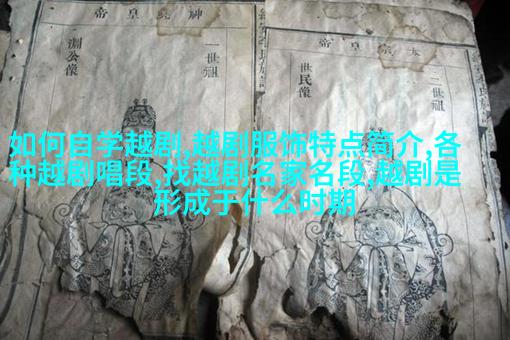 神堯皇帝
一世祖
淵公像
二世祖
世民像
如何自学越剧,越剧服饰特点简介,各
种越剧唱段,找越剧名家名段,越剧是
形成于什么时期